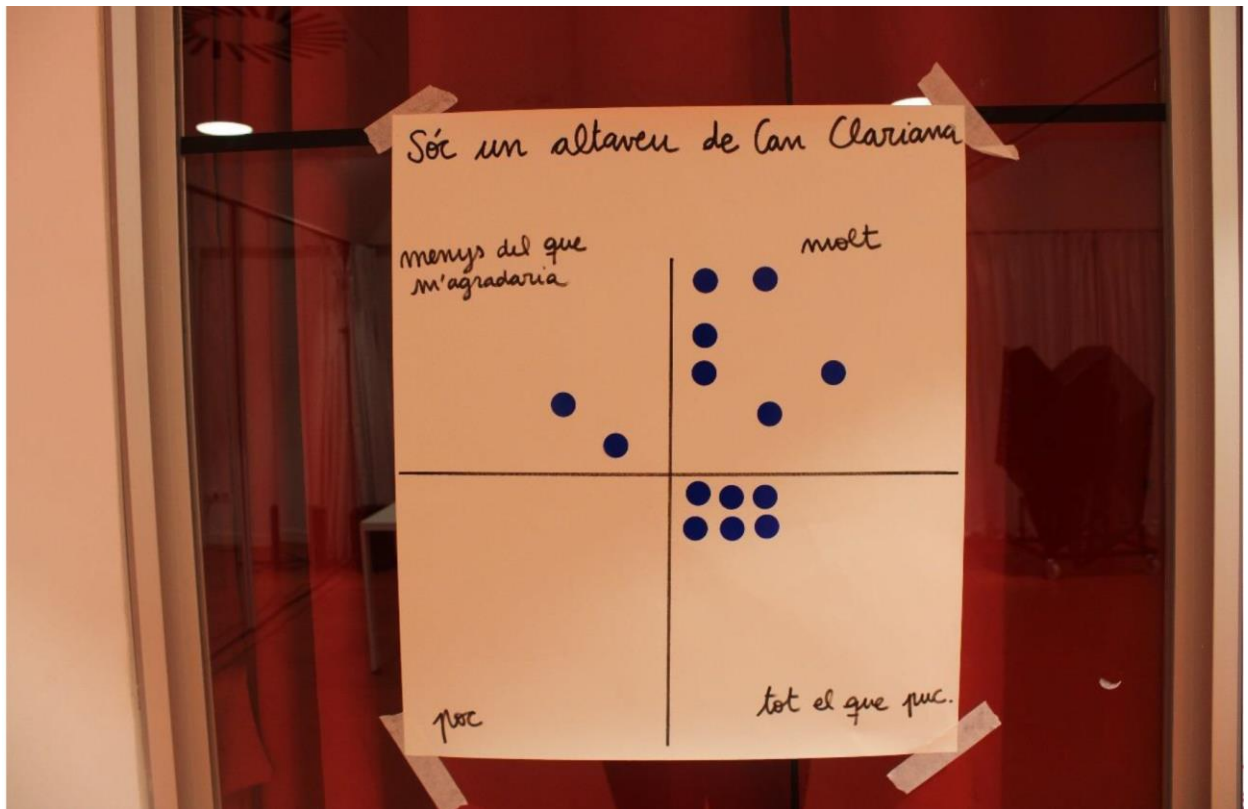 Sóc un altaveu de Can Clariana
menys del que
m'agradaria
molt
poc
tot el que puc.